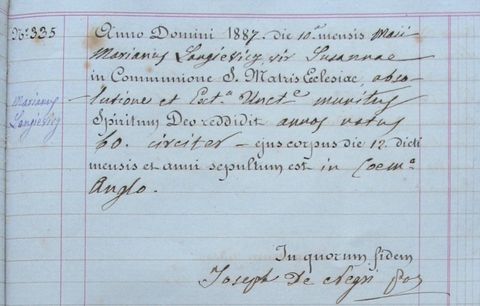 No. 335
Anno Domini 1887 die 10a mensis Maii
Marianus Langiewicz vir Susannae
in Communione S. Matris Ecclesiae, abso-
Marianus
Langiewicz
lutione et Exta Uncte munitus
Spiritum Deo reddidit annos natus
60. circiter – ejus corpus die 12. dicti
mensis et anni sepultum est in Coema
Anglo.
In quorum fidem
Joseph De Negri